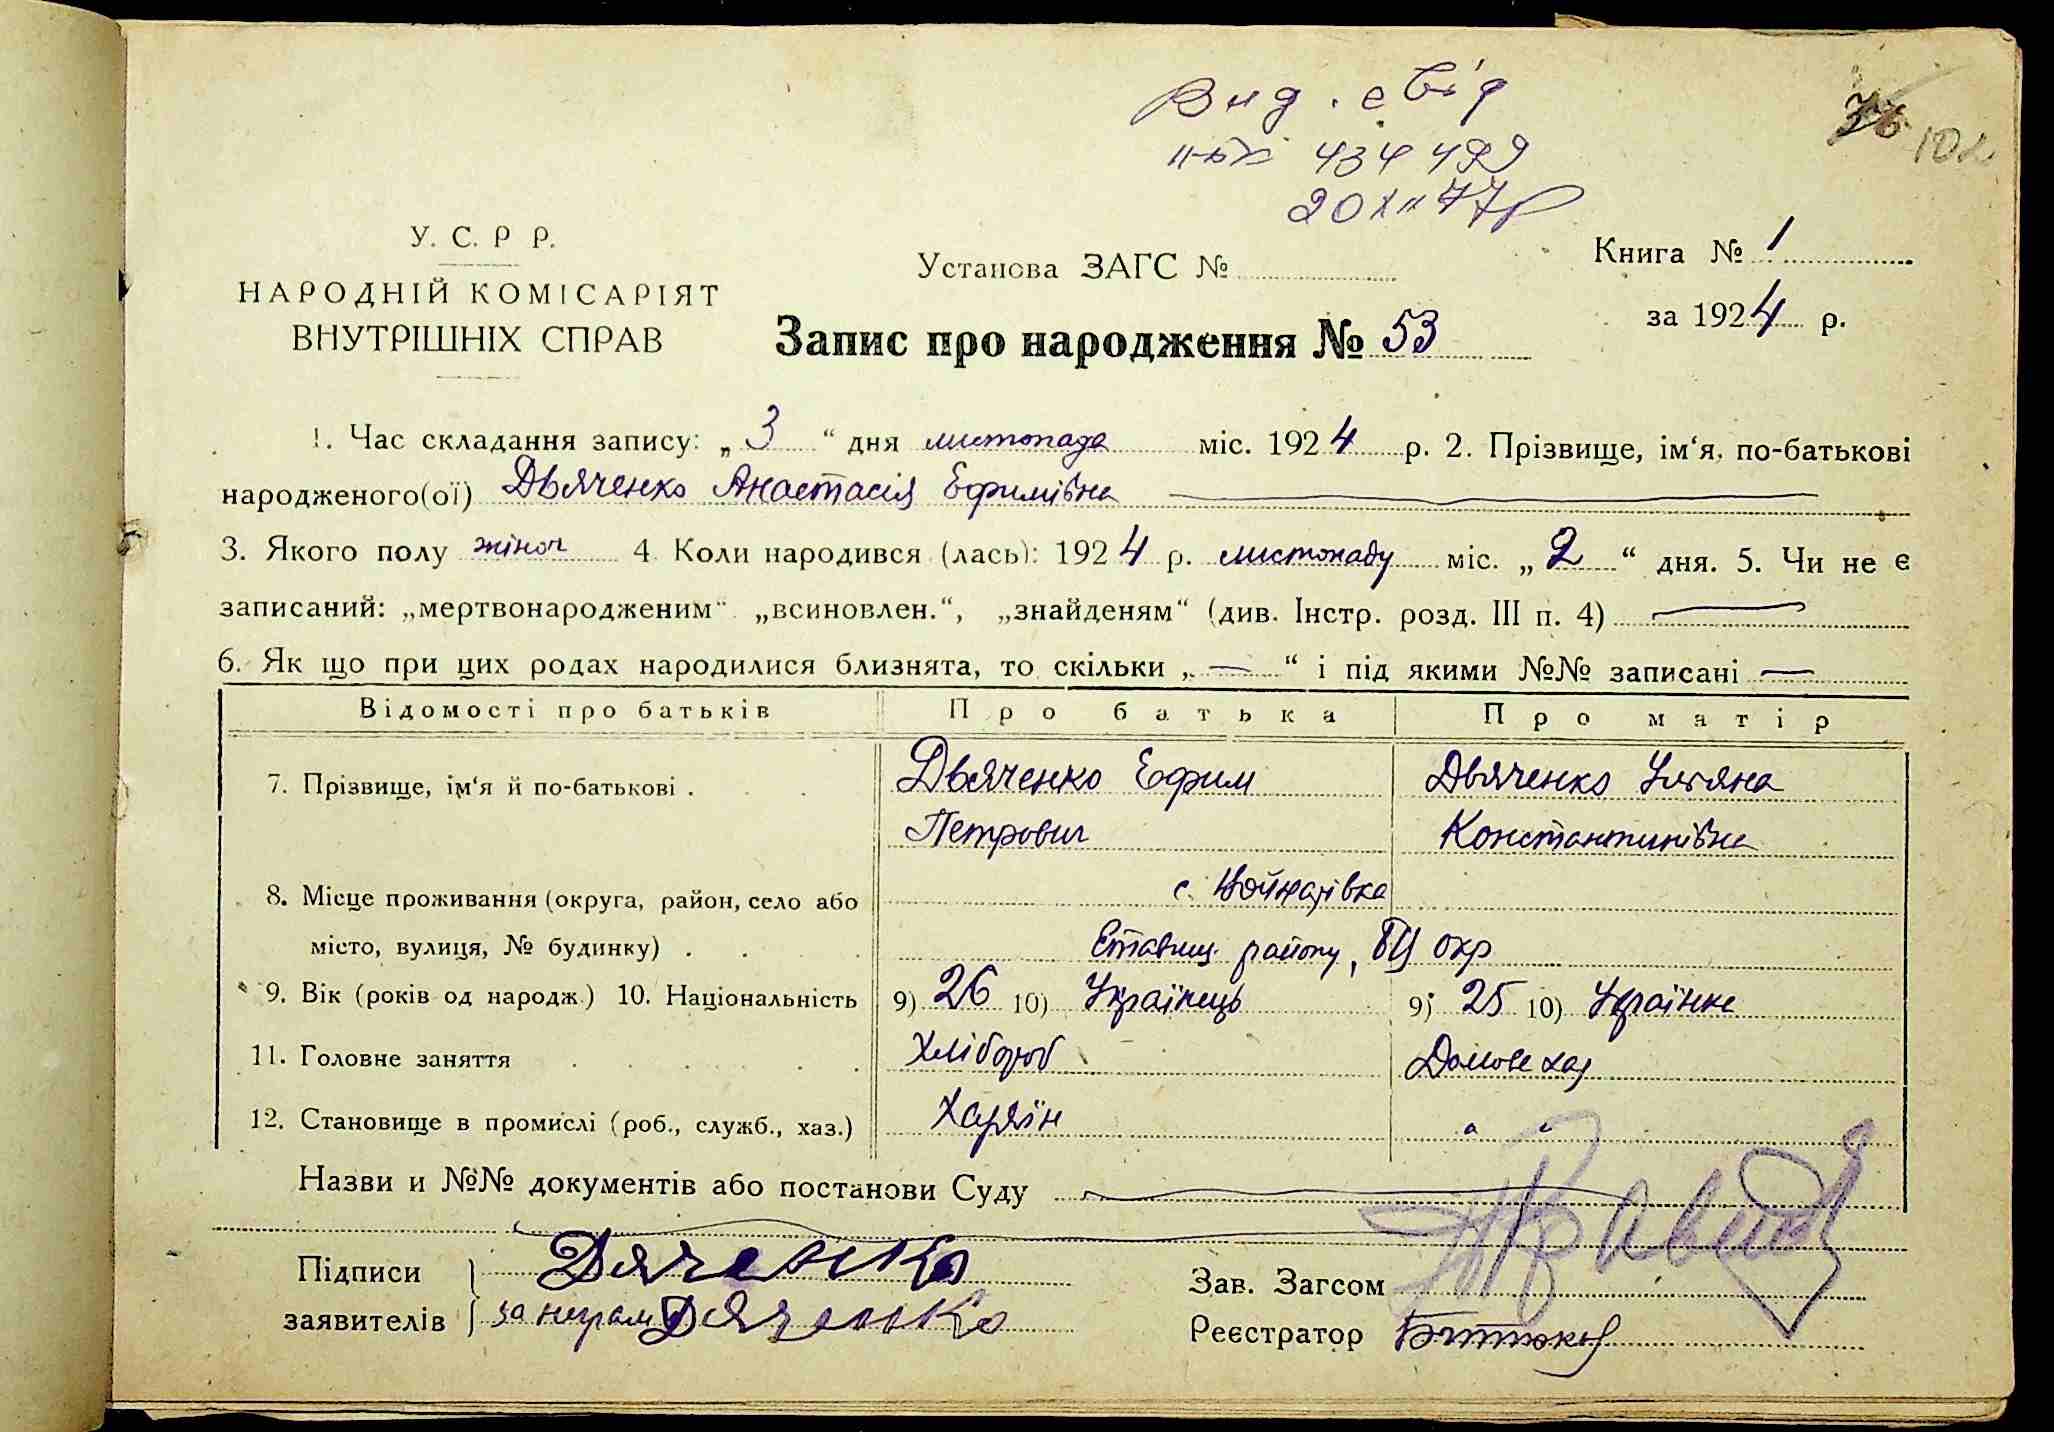 Вид. свід
434499
20 XII 77р
102
У. С. Р Р.
НАРОДНІЙ КОМІСАРІЯТ
ВНУТРІШНІХ СПРАВ
Установа ЗАГС №
Книга № 1
за 1924 р.
Запис про народження № 53
1. Час складання запису: „3“ дня листопада міс. 1924 р. 2. Прізвище, ім‘я, по-батькові
народженого(ої) Дьяченко Анастасія Ефимівна
3. Якого полу жіноч 4. Коли народився (лась): 1924 р. листопаду міс. „2“ дня. 5. Чи не є
записаний: „мертвонародженим“ „всиновлен.“, „знайденям“ (див. Інстр. розд. III п. 4)
6. Як що при цих родах народилися близнята, то скільки „—“ і під якими №№ записані —
Відомості про батьків Про батька Про матір
7. Прізвище, ім‘я й по-батькові . Дьяченко Ефим Дьяченко Уляна
Петрович Константинівна
8. Місце проживання (округа, район, село або с.
місто, вулиця, № будинку) . Ставищ. району, БЦ окр
9. Вік (років од народж.) 10. Національність 9) 26 10) Українець 9) 25 10) Українка
11. Головне заняття Хлібороб Домове хаз
12. Становище в промислі (роб., служб., хаз.) Хазяїн " "
Назви и №№ документів або постанови Суду
Підписи Дяченко
Зав. Загсом
заявителів за неграм Дяченко
Реєстратор